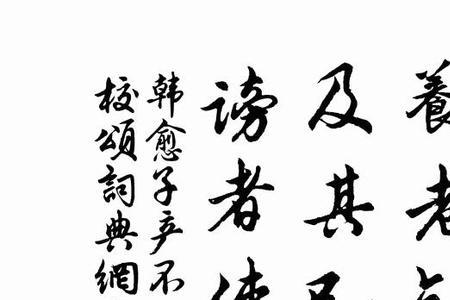 養老
及其已
謗者使
韓愈子产不
校頌詞典網